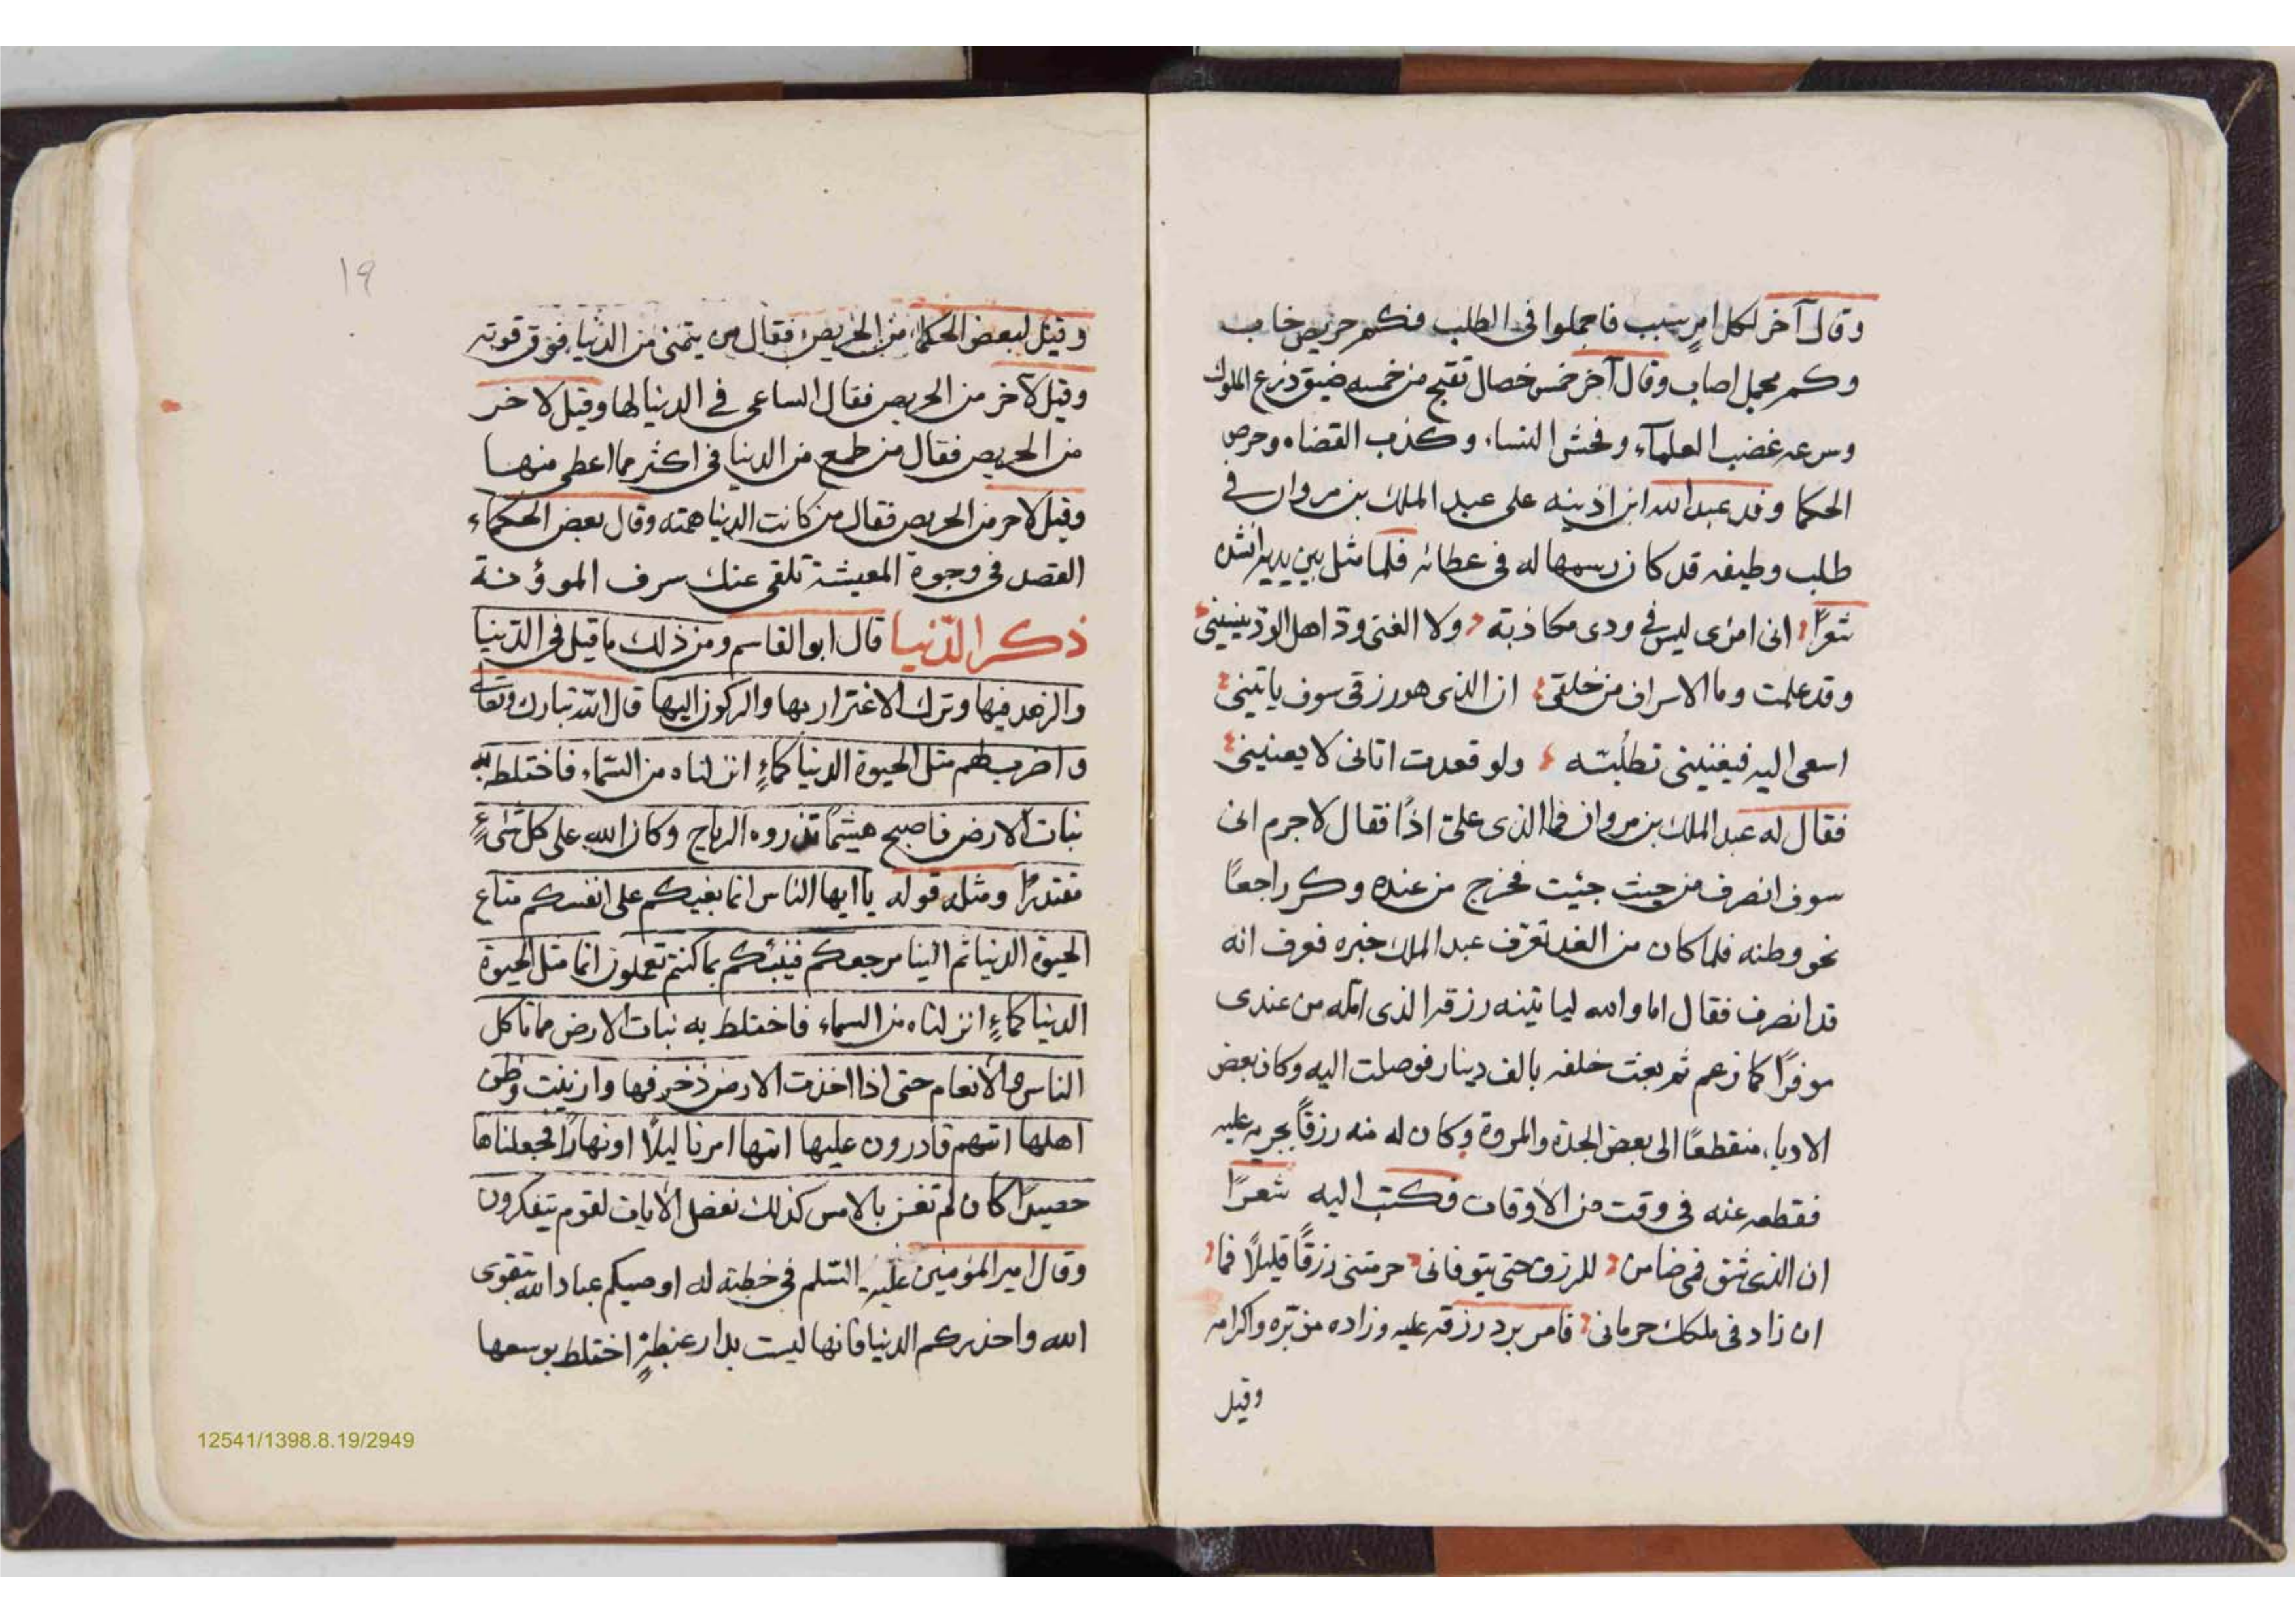 وقال آخر لكل امرٍ سبب فاجملوا في الطلب فكم حريص خاب
وكم مجمل اصاب وقال آخر خمس خصال تقبح من خمسه ضيق ذرع الملوك
وسرعه غضب العلمآء وفحش النساء وكذب القضاه وحرص
الحكما وفد عبدالله ابن اذينه على عبد الملك بن مروان في
طلب وظيفه قد كان رسمها له في عطائه فلما مثل بين يديه انشده
شعرًا انى امرى ليس في ودى مكاذبة ولا الغنى ودّ اهل الودّ ينسينى
وقد علمت وما الاسراف من خلقى ان الذى هو رزقى سوف ياتينى
اسعى اليه فيغنينى تطلّبته ولو قعدت اتانى لا يعنينى
فقال له عبد الملك بن مروان فما الذى علىّ اذًا فقال لا جرم انى
سوف انصرف من حيث جئيت فخرج من عنده وكر راجعًا
نحو وطنه فلما كان من الغد تعرّف عبد الملك خبره فعرف انه
قد انصرف فقال اما والله لياتينه رزقه الذى امّله من عندى
موفرًا كما زعم ثم بعث خلفه بالف دينار فوصلت اليه وكان بعض
الادباء منقطعًا الى بعض الجدة والمروة وكان له منه رزقًا يجريه عليه
فقطعه عنه في وقت من الاوقات فكتب اليه شعرًا
ان الذى شق فمى ضامن للرزق حتى يتوفانى حرمتنى رزقًا قليلًا فما
ان زاد في ملكك حرمانى فامر برد رزقه عليه وزاده من برّه واكرامه
وقيل
١٩
وقيل لبعض الحكماء من الحريص فقال من يتمنى من الدنيا فوق قوته
وقيل لآخر من الحريص فقال الساعى في الدنيا لها وقيل لاخر
من الحريص فقال من طمع من الدنيا في اكثر مما اعطى منها
وقيل لاخر من الحريص فقال من كانت الدنيا همته وقال بعض الحكماء
القصد في وجوه المعيشة تلقى عنك سرف الموؤنة
ذكر الدّنيا قال ابو القاسم ومن ذلك ما قيل في الدّنيا
والزهد فيها وترك الاغترار بها والركون اليها قال الله تبارك وتعالى
واضرب لهم مثل الحيوة الدنيا كماءٍ انزلناه من السماء فاختلط به
نبات الارض فاصبح هشيمًا تذروه الرياح وكان الله على كل شىءٍ
مقتدرًا ومثله قوله يا ايها الناس انما بغيكم على انفسكم متاع
الحيوة الدنيا ثم الينا مرجعكم فينبئكم بما كنتم تعملون انما مثل الحيوة
الدنيا كماءٍ انزلناه من السماء فاختلط به نبات الارض مما تاكل
الناس والأنعام حتى اذا اخذت الارض زخرفها وازينت وظن
اهلها انهم قادرون عليها اتيها امرنا ليلًا او نهارًا فجعلناها
حصيدًا كان لم تغن بالامس كذلك نفصل الآيات لقوم يتفكرون
وقال امير المؤمنين عليه السّلم في خطبته له اوصيكم عباد الله بتقوى
الله واحذركم الدنيا فانها ليست بدار غبطةٍ اختلط بوسعها
12541/1398.8.19/2949